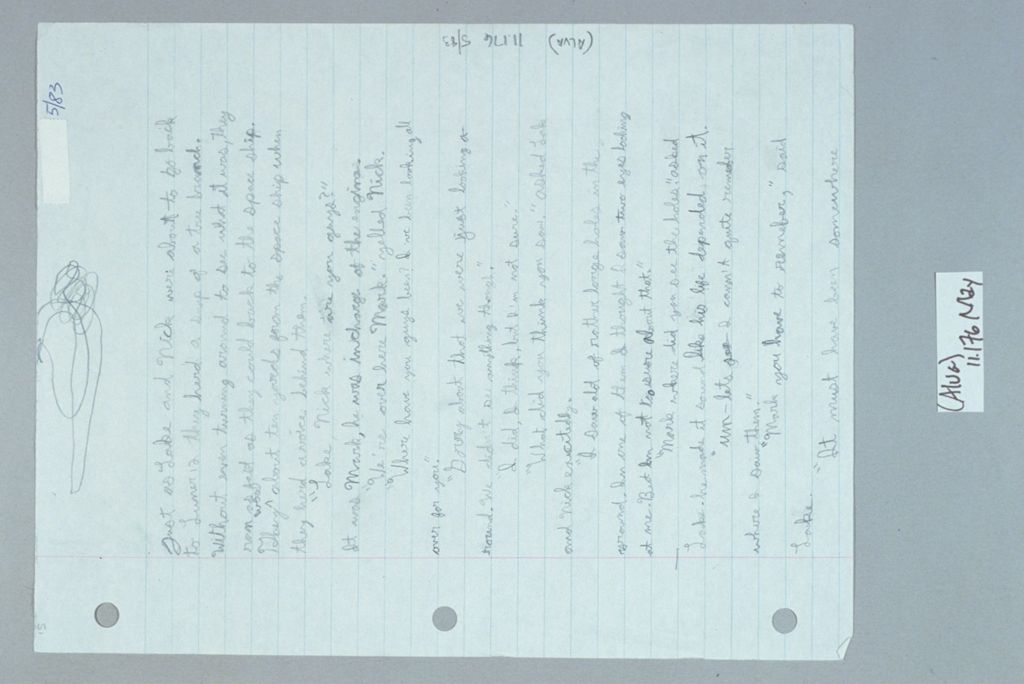 5/83
Just as Lake and Nick were about to go back
to Lumeria they herd a snap of a tree branch.
Without even turning around to see what it was, they
ran as fast as they could back to the space ship.
They was about ten yards from the space ship when
they herd a voice behind them.
"Lake, Nick where are you guys?"
It was Mark, he was in charge of the engines.
"We're over here Mark." yelled Nick.
"Where have you guys been? I've been looking all
over for you."
"Sorry about that we were just looking a-
round. We didn't see anything though."
"I did, I think, but I'm not sure."
"What did you think you saw." asked Lake
and Nick excitedly.
"I saw alot of rather large holes in the
ground. In one of them I thought I saw two eyes looking
at me. But I'm not to sure about that."
"Mark where did you see the holes" asked
Lake. he made it sound like his life depended on it.
"um-lets see I can't quite remeber
where I saw them."
"Mark you have to remeber," said
Lake.
"It must have been somewhere
(ALVA) 11.176 5/83
(Alva)
11.176 May